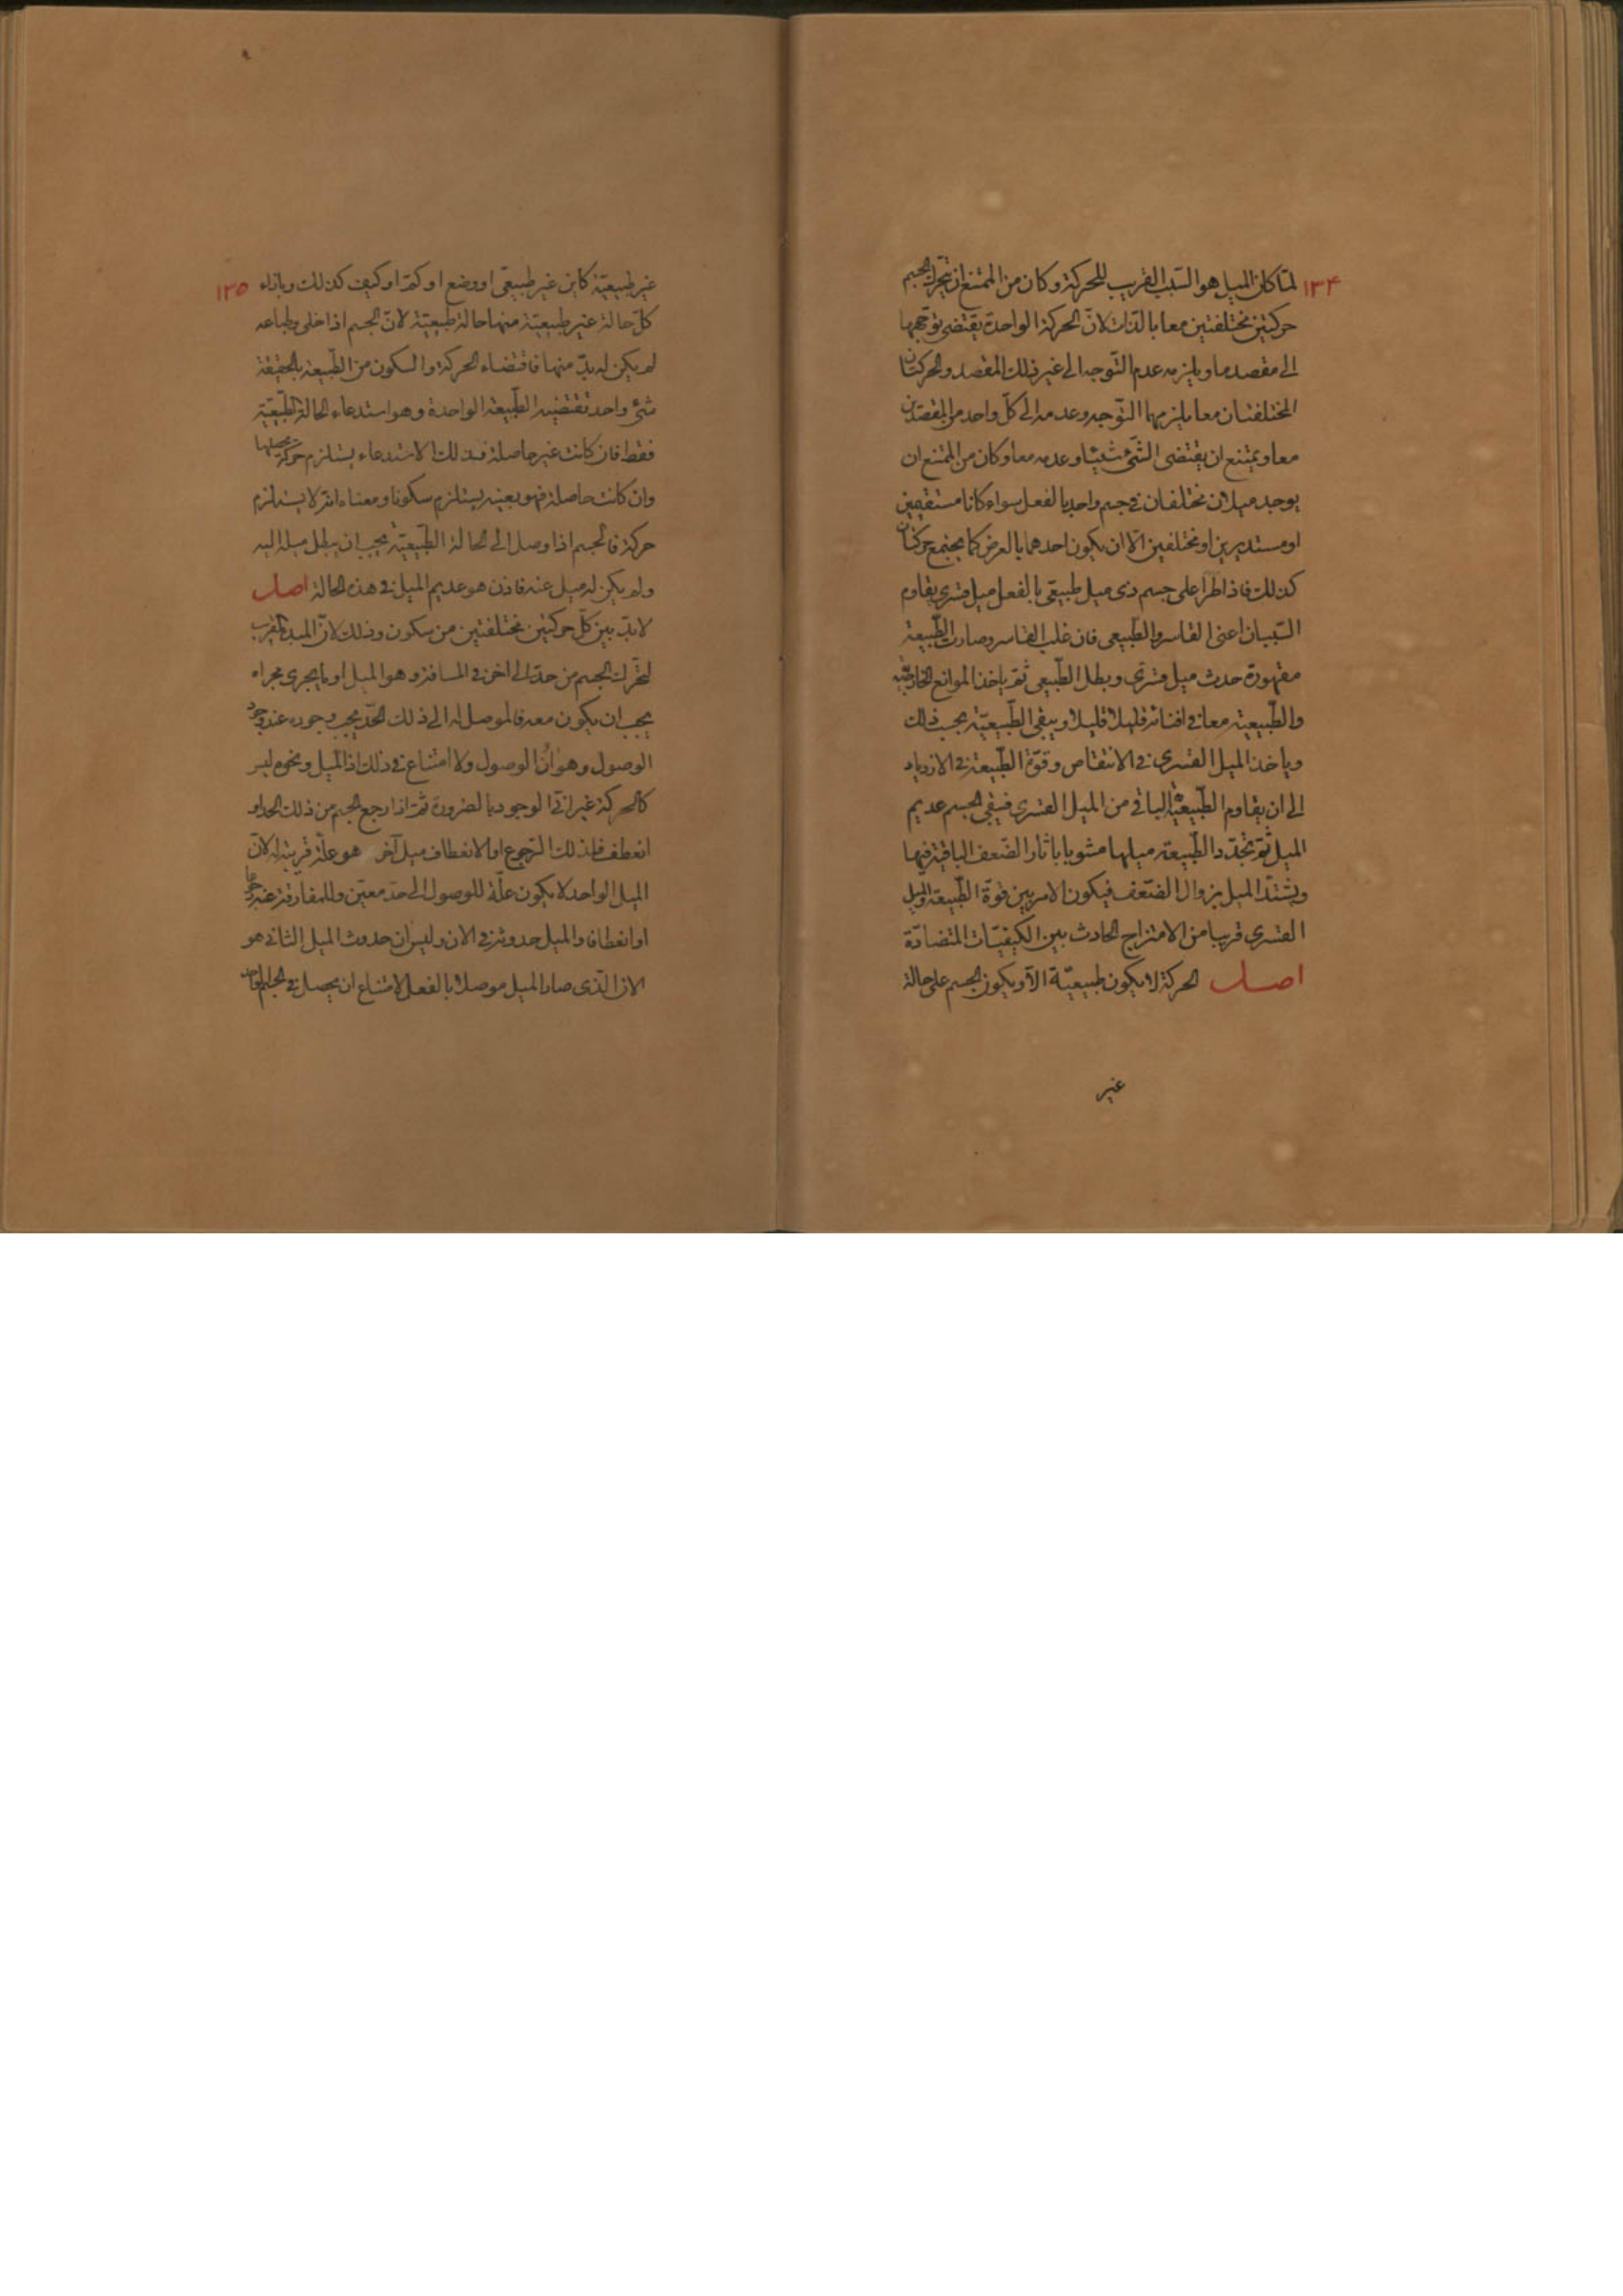 ١٣۴
لمّا كان الميل هو السّبب القريب للحركة وكان من الممتنع ان يتحرك الجسم
حركتين مختلفتين معا بالذات لانّ الحركة الواحدة يقتضى توجّهها
الى مقصد ما ويلزمه عدم التّوجه الى غير ذلك المقصد والحركتان
المختلفتان معا يلزمهما التّوجه وعدمه الى كلّ واحد من المقصدين
معا ويمتنع ان يقتضى الشّئ شيئا وعدمه معا وكان من الممتنع ان
يوجد ميلان مختلفان فى جسم واحد بالفعل سواء كانا مستقيمين
او مستديرين او مختلفين الّا ان يكون احدهما بالعرض كما يجتمع حركتان
كذلك فاذا طرا على جسم ذى ميل طبيعّى بالفعل ميل قسرى يقاوم
السّببان اعنى القاسر والطّبيعى فان غلب القاسر وصارت الطّبيعة
مقهورة حدث ميل قسرّى وبطل الطّبيعى ثمّ ياخذ الموانع الخارجيّة
والطّبيعية معا فى افنائه قليلا قليلا ويبقى الطّبيعيّة بحسب ذلك
وياخذ الميل القسرى فى الانتقاص وقوّة الطّبيعة فى الازدياد
الى ان يقاوم الطّبيعة الباقى من الميل القسرى فيبقى الجسم عديم
الميل ثمّ تجدّد الطّبيعة ميلها مشوبا باثار الضّعف الباقية فيها
ويشتدّ الميل بزوال الضّعف فيكون الامر بين قوّة الطّبيعة والميل
القسرى قريبا من الامتزاج الحادث بين الكيفيّات المتضادّة
اصل الحركة لا يكون طبيعيّة الّا ويكون الجسم على حالة
غير
١٣٥
غير طبيعيّة كاين غير طبيعّى او وضع او كمّ او كيف كذلك وبازاء
كلّ حالة غير طبيعيّة منها حالة طبيعيّة لانّ الجسم اذا خلى وطباعه
لم يكن له بدّ منها فاقتضاء الحركة والسكون من الطّبيعة بالحقيقة
شئ واحد تقتضيه الطّبيعة الواحدة وهو استدعاء الحالة الطّبيعيّة
فقط فان كانت غير حاصلة فذلك الاستدعاء يستلزم حركة تحصلها
وان كانت حاصلة فهو بعينه يستلزم سكونا ومعناه انّه لا يستلزم
حركة فالجسم اذا وصل الى الحالة الطّبيعيّة يجب ان يبطل ميله اليه
ولم يكن له ميل عنه فاذن هو عديم الميل فى هذه الحالة اصل
لا بدّ بين كلّ حركتين مختلفتين من سكون وذلك لانّ المبدا القريب
لتحّرك الجسم من حدّ الى اخر فى المسافة وهو الميل او ما يجرى مجراه
يجب ان يكون معه فالموصل له الى ذلك الحدّ يجب وجوده عند وجود
الوصول وهو آن الوصول ولا امتناع فى ذلك اذ الميل ونحوه ليس
كالحركة غير انّى الوجود بالضرورة ثمّ اذا رجع الجسم من ذلك الحد او
انعطف فلذلك الرّجوع او الانعطاف ميل آخر هو علّة قريبة له لانّ
الميل الواحد لا يكون علّة للوصول الى حد معيّن وللمفارقة عنه رجوعا
او انعطافا والميل حدوثه فى الان وليس ان حدوث الميل الثانى هو
الان الّذى صار الميل موصلا بالفعل لامتناع ان يحصل فى الجسم الواحد